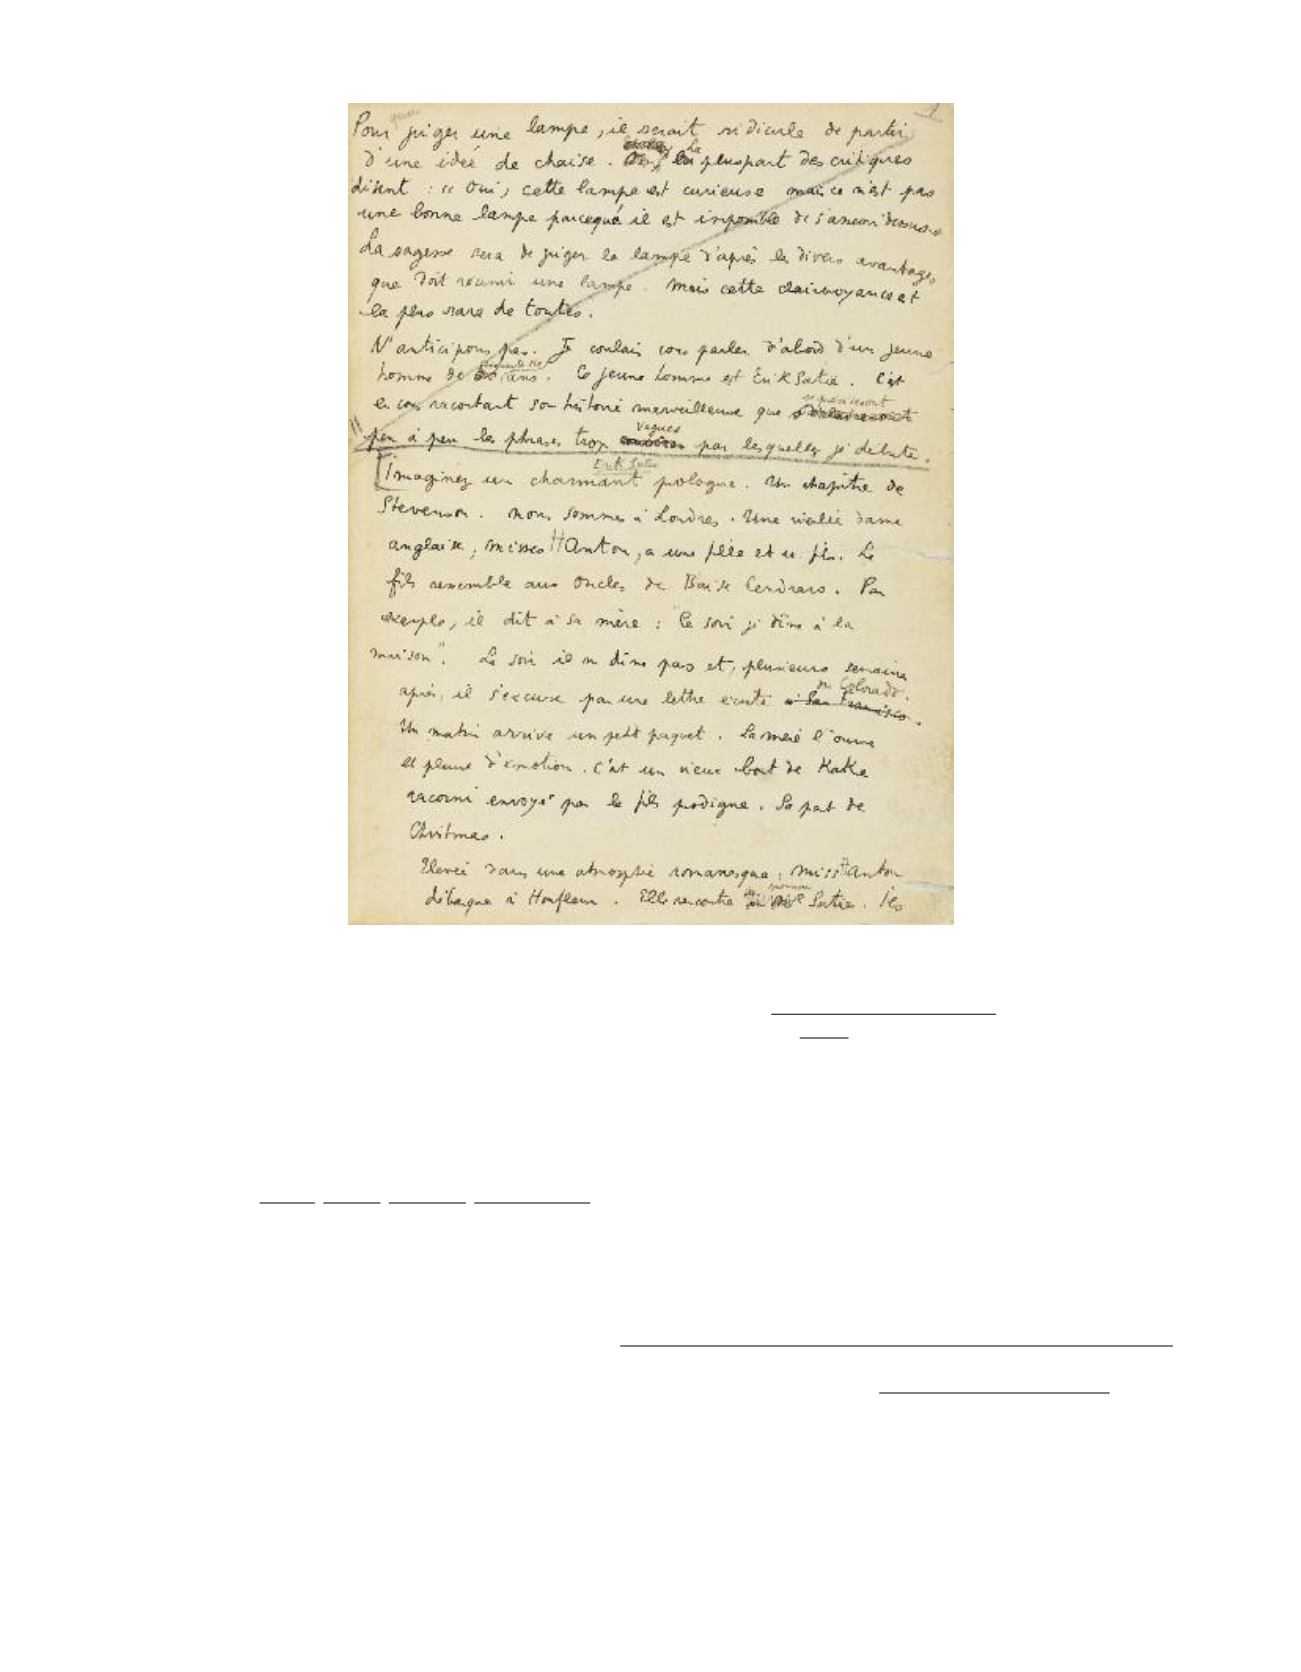 1
Pour juger une lampe, il serait ridicule de partir
d'une idée de chaise. La pluspart des critiques
disent : "Oui, cette lampe est curieuse mais ce n'est pas
une bonne lampe parcequ' il est impossible de s'asseoir dessus
La sagesse sera de juger la lampe d'après les divers avantages
que doit réunir une lampe. Mais cette clairvoyance est
la plus rare de toutes.
N'anticipons pas. Je voulais vous parler d'abord d'un jeune
homme de ans. Ce jeune homme est Erik Satie. C'est
en vous racontant son histoire merveilleuse que
peu à peu les phrases trop vagues par lesquelles je débute.
Erik Satie
Imaginez un charmant prologue. Un chapitre de
Stevenson. Nous sommes à Londres. Une vieille dame
anglaise, misses Hanton, a une fille et un fils. Le
fils ressemble aux oncles de Blaise Cendrars. Par
exemple, il dit à sa mère : "Ce soir je dîne à la
maison". Le soir il ne dîne pas et, plusieurs semaines
après, il s'excuse par une lettre écrite du Colorado.
à San Francisco.
Un matin arrive un petit paquet. La mère l'ouvre
et pleure d'émotion. C'est un vieux bout de Kake
racorni envoyé par le fils prodigue. Sa part de
Christmas.
Elevée dans une atmosphère romanesque, miss Hanton
débarque à Honfleur. Elle rencontre Satie. Ils